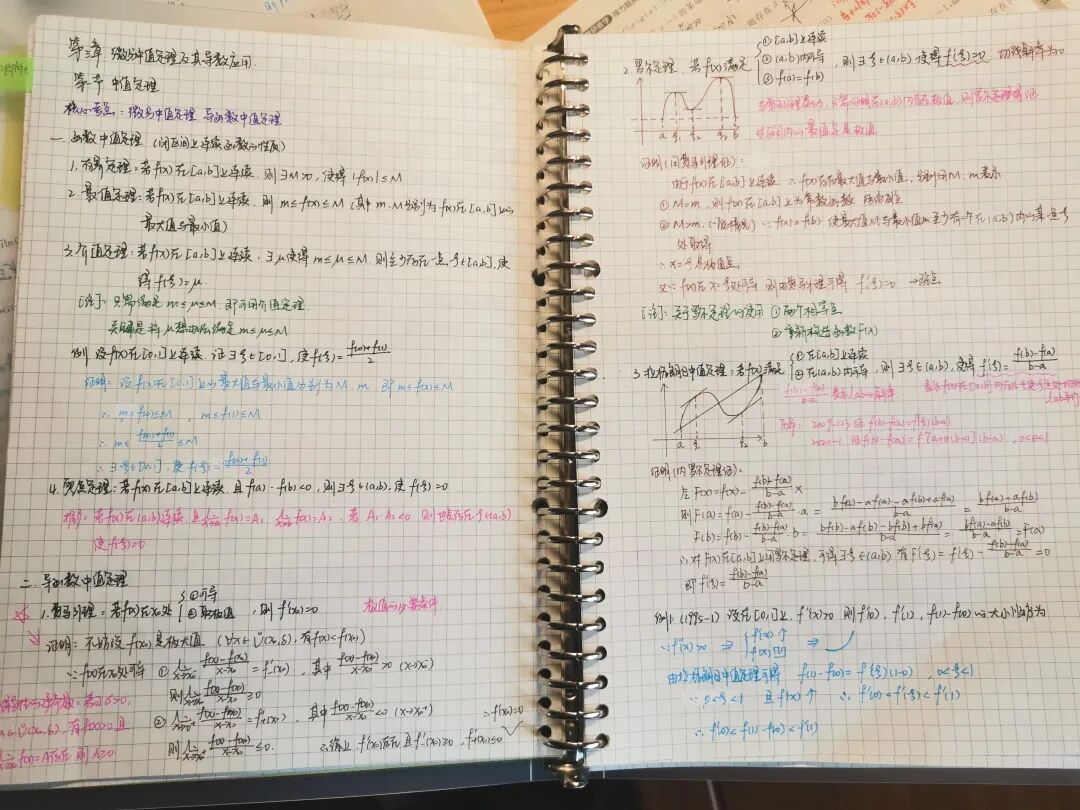 第三章 微分中值定理及其导数应用.
第一节 中值定理
核心考点：微分中值定理 导函数中值定理
一. 函数中值定理 (闭区间上连续函数的性质)
1. 有界定理：若f(x)在[a,b]上连续. 则∃M>0, 使得|f(x)|≤M
2. 最值定理：若f(x)在[a,b]上连续. 则 m≤f(x)≤M (其中 m.M分别为f(x)在[a,b]上的
最大值与最小值)
3. 介值定理：若f(x)在[a,b]上连续. ∃μ使得m≤μ≤M. 则至少存在一点ξ∈[a,b], 使
得 f(ξ)=μ
[注]：只需满足 m≤μ≤M. 即可用介值定理.
关键是将μ想办法满足 m≤μ≤M
例 设f(x)在[0,1]上连续. 证∃ξ∈[0,1], 使f(ξ)=(f(0)+f(1))/2
证明：设f(x)在[0,1]上的最大值与最小值分别为M, m 即 m≤f(x)≤M
∴ m≤f(0)≤M , m≤f(1)≤M
∴ m≤(f(0)+f(1))/2≤M
∴ ∃ξ∈[0,1], 使f(ξ)=(f(0)+f(1))/2
4. 零点定理：若f(x)在[a,b]上连续. 且f(a)·f(b)<0, 则∃ξ∈(a,b), 使f(ξ)=0
推广：若f(x)在(a,b)连续, 且 lim f(x)=A₁, lim f(x)=A₂, 若 A₁·A₂<0 则 存在ξ∈(a,b)
使f(ξ)=0
二. 导函数中值定理
1. 费马引理：若f(x)在x₀处 {①可导 ②取极值 , 则f'(x₀)=0 极值的必要条件.
证明：不妨设f(x₀)是极大值 (∀x∈Ů(x₀,δ), 有f(x)<f(x₀))
∵f(x)在x₀处可导 ① lim(x→x₀⁻) (f(x)-f(x₀))/(x-x₀)=f'₋(x₀) , 其中 (f(x)-f(x₀))/(x-x₀)>0 (x→x₀⁻)
则 lim(x→x₀⁻) (f(x)-f(x₀))/(x-x₀)≥0
② lim(x→x₀⁺) (f(x)-f(x₀))/(x-x₀)=f'₊(x₀) , 其中 (f(x)-f(x₀))/(x-x₀)<0 (x→x₀⁺)
则 lim(x→x₀⁺) (f(x)-f(x₀))/(x-x₀)≤0.
∴综上 f'(x₀)存在 且f'₋(x₀)≥0, f'₊(x₀)≤0 ∴f'(x₀)=0
若∃δ>0,
x∈Ů(x₀,δ), 有f(x)>0, 且
lim f(x)=A存在 则 A≥0.
2. 罗尔定理 若f(x)满足 {①[a,b]上连续 ②(a,b)内可导 ③f(a)=f(b) , 则∃ξ∈(a,b) 使得f'(ξ)=0 切线斜率为0
a ξ₁ ξ₂ ξ₃ b
与费马引理类似, 只需证明在(a,b)内存在极值, 则罗尔定理得证
区间内的最值定是极值
证明(用费马引理证)：
由f(x)在[a,b]上连续 ∴f(x)存在最大值与最小值, 分别用M, m表示
① M=m, 则f(x)在[a,b]上为常数函数 结论成立
② M>m (一般情况) ∵f(a)=f(b) 使最大值M与最小值m至少有一个在(a,b)内的某一点ξ
处取得
∴ x=ξ是极值点
又∵f(x)在x=ξ处可导 则由费马引理可得 f'(ξ)=0 →驻点
[注]：关于罗尔定理的使用 ①两个相等点
②重新构造函数F(x)
3. 拉格朗日中值定理：若f(x)满足 {①在[a,b]上连续 ②在(a,b)内可导, 则∃ξ∈(a,b), 使得f'(ξ)=(f(b)-f(a))/(b-a)
a ξ₁ ξ₂ b
(f(b)-f(a))/(b-a) 表示lab的斜率
f(b)-f(a)=f'(ξ)(b-a)
f(b)-f(a)=f'[a+θ(b-a)](b-a) , 0<θ<1
证明(由罗尔定理证)：
令F(x)=f(x)-(f(b)-f(a))/(b-a) x
则F(a)=f(a)-(f(b)-f(a))/(b-a)·a=(bf(a)-af(a)-af(b)+af(a))/(b-a)=(bf(a)-af(b))/(b-a)
F(b)=f(b)-(f(b)-f(a))/(b-a)·b=(bf(b)-af(b)-bf(b)+bf(a))/(b-a)=(bf(a)-af(b))/(b-a)=F(a)
∴对F(x)在[a,b]上用罗尔定理, 可得∃ξ∈(a,b) 有F'(ξ)=f'(ξ)-(f(b)-f(a))/(b-a)=0
即f'(ξ)=(f(b)-f(a))/(b-a)
例1：(1995-1) 设在[0,1]上, f''(x)>0 则f'(0), f'(1), f(1)-f(0)的大小顺序为
∵f''(x)>0 ⇒ {f'(x)↑ f(x)凹 ⇒
由拉格朗日中值定理可得 f(1)-f(0)=f'(ξ)(1-0), 0<ξ<1
∵ 0<ξ<1 且f'(x)↑ ∴f'(0)<f'(ξ)<f'(1)
∴ f'(0)<f(1)-f(0)<f'(1)